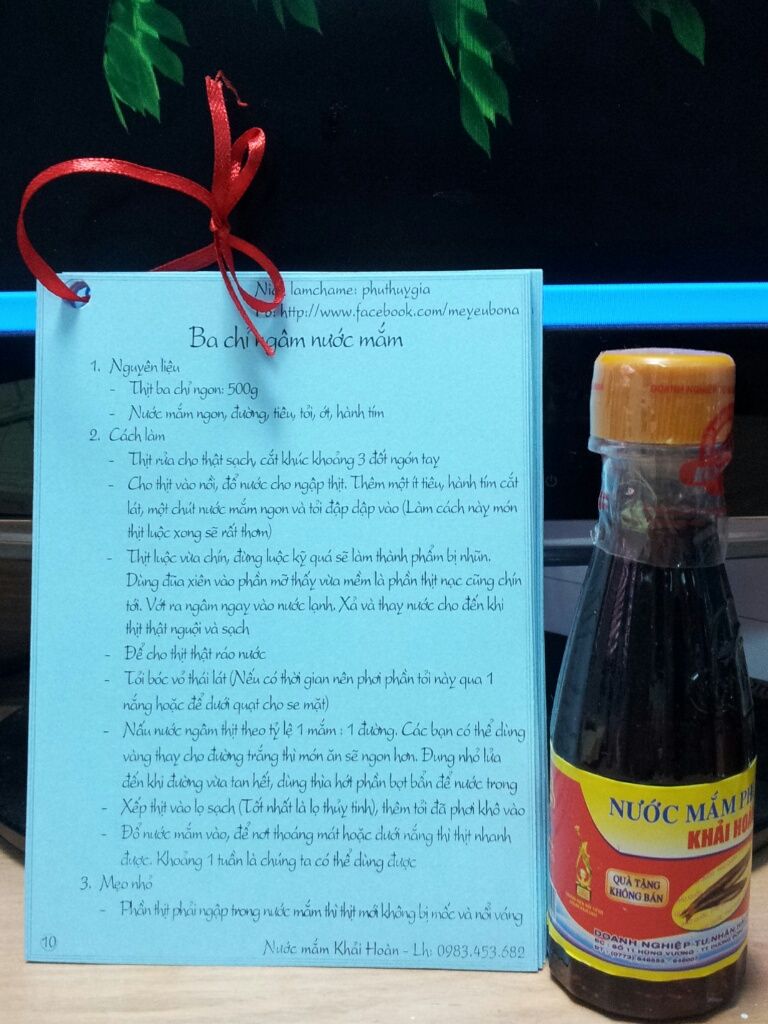 Nick lamchame: phuthuygia
http://www.facebook.com/meyeubona
Ba chỉ ngâm nước mắm
1. Nguyên liệu
- Thịt ba chỉ ngon: 500g
- Nước mắm ngon, đường, tiêu, tỏi, ớt, hành tím
2. Cách làm
- Thịt rửa cho thật sạch, cắt khúc khoảng 3 đốt ngón tay
- Cho thịt vào nồi, đổ nước cho ngập thịt. Thêm một ít tiêu, hành tím cắt
lát, một chút nước mắm ngon và tỏi đập dập vào (Làm cách này món
thịt luộc xong sẽ rất thơm)
- Thịt luộc vừa chín, đừng luộc kỹ quá sẽ làm thành phẩm bị nhũn.
Dùng đũa xiên vào phần mỡ thấy vừa mềm là phần thịt nạc cũng chín
tới. Vớt ra ngâm ngay vào nước lạnh. Xả và thay nước cho đến khi
thịt thật nguội và sạch
- Để cho thịt thật ráo nước
- Tỏi bóc vỏ thái lát (Nếu có thời gian nên phơi phần tỏi này qua 1
nắng hoặc để dưới quạt cho se mặt)
- Nấu nước ngâm thịt theo tỷ lệ 1 mắm : 1 đường. Các bạn có thể dùng
đường vàng thay cho đường trắng thì món ăn sẽ ngon hơn. Đung nhỏ lửa
đến khi đường vừa tan hết, dùng thìa hớt phần bọt bẩn để nước trong
- Xếp thịt vào lọ sạch (Tốt nhất là lọ thủy tinh), thêm tỏi đã phơi khô vào
- Đổ nước mắm vào, để nơi thoáng mát hoặc dưới nắng thì thịt nhanh
được. Khoảng 1 tuần là chúng ta có thể dùng được
3. Mẹo nhỏ
- Phần thịt phải ngập trong nước mắm thì thịt mới không bị mốc và nổi váng
10
Nước mắm Khải Hoàn - Lh: 0983.453.682
DOANH NGHIỆP
NƯỚC MẮM
KHẢI
QUÀ TẶNG
KHÔNG BÁN
DOANH NGHIỆP TƯ NHÂN
ĐC : SỐ 11 HÙNG VƯƠNG